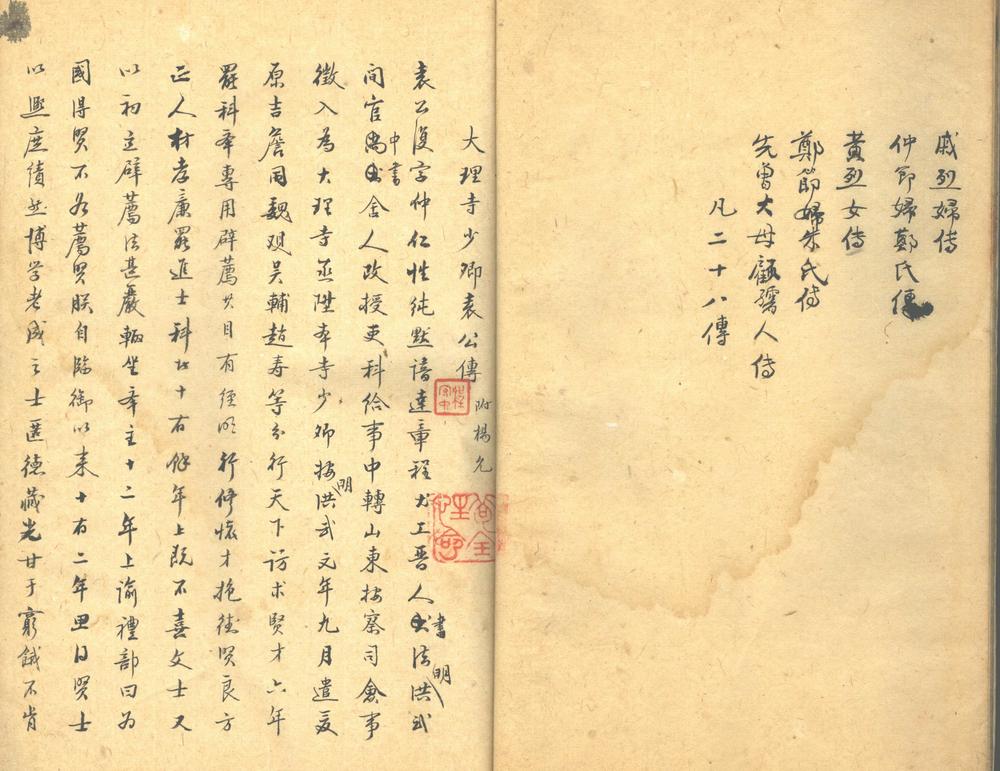 戚烈婦傳
仲節婦鄭氏傳
黃烈女傳
鄭節婦朱氏傳
先曾大母顧孺人傳
凡二十八傳
大理寺少卿袁公傳 附楊允
袁公復字仲仁性純默諳達章程尤工晉人書法明洪武
間官中書舍人改授吏科給事中轉山東按察司僉事
徵入為大理寺丞陞本寺少卿按明洪武元年九月遣夏
原吉詹同魏观吴輔趙寿等分行天下访求賢才六年
罷科舉專用辟薦其目有經明行修懷才抱德賢良方
正人材孝廉罷進士科者十有餘年上既不喜文士又
以初立辟薦法甚嚴輒坐举主十二年上諭禮部曰为
國得贤不如薦贤朕自臨御以来十有二年思得贤士
以熙庶績然博学老成之士匿德藏光甘于窮餓不肯